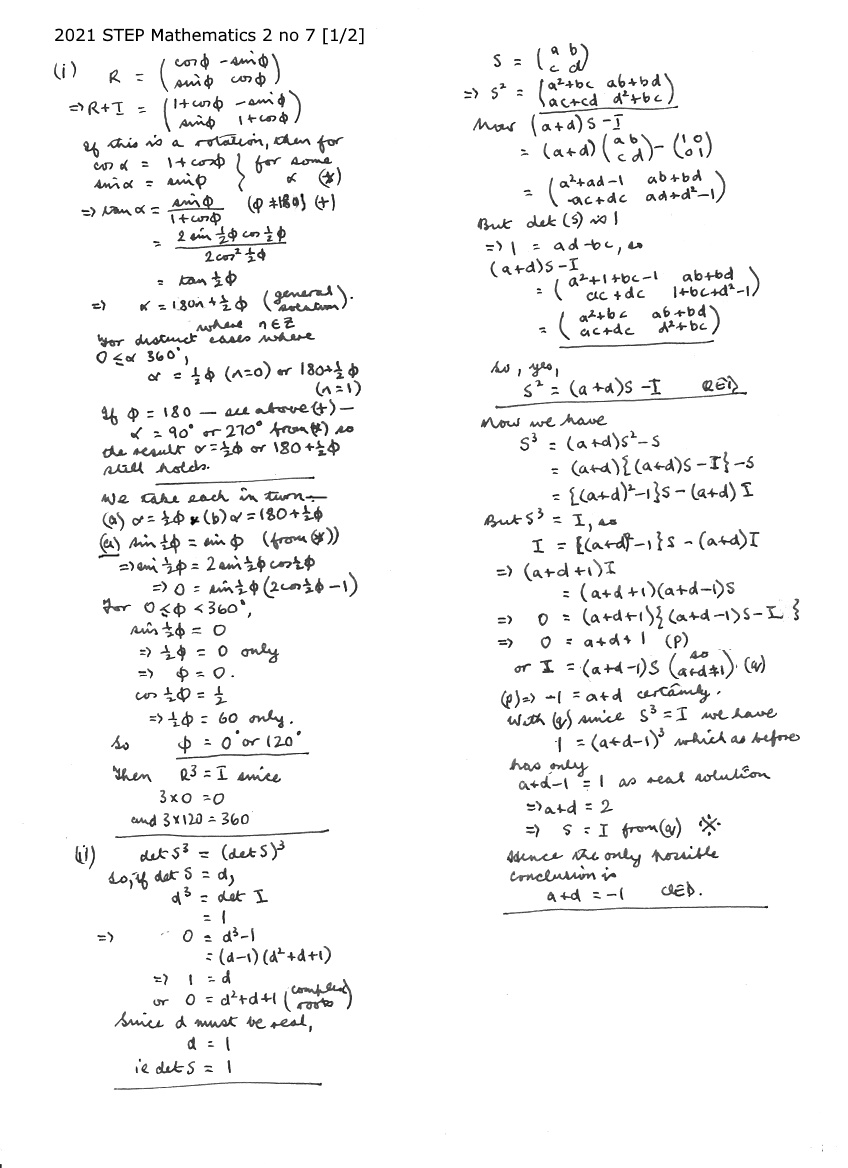 2021 STEP Mathematics 2 no 7 [1/2]
(i) R = (cosϕ -sinϕ
sinϕ cosϕ)
=> R+I = (1+cosϕ -sinϕ
sinϕ 1+cosϕ)
If this is a rotation, then for
cos α = 1+cosϕ } for some
sin α = sinϕ } α (*)
=> tan α = sinϕ / 1+cosϕ (ϕ ≠ 180) (†)
= 2 sin ½ϕ cos ½ϕ / 2cos² ½ϕ
= tan ½ϕ
=> α = 180n + ½ϕ (general solution).
where n∈Z
For distinct cases where
0 ≤ α 360°,
α = ½ϕ (n=0) or 180+½ϕ
(n=1)
If ϕ = 180 — see above (†) —
α = 90° or 270° from (*) so
the result α=½ϕ or 180+½ϕ
still holds.
We take each in turn:—
(a) α=½ϕ & (b) α=180+½ϕ
(a) sin ½ϕ = sin ϕ (from (*))
=> sin ½ϕ = 2 sin ½ϕ cos ½ϕ
=> 0 = sin ½ϕ (2cos ½ϕ -1)
For 0 ≤ ϕ < 360°,
sin ½ϕ = 0
=> ½ϕ = 0 only
=> ϕ = 0.
cos ½ϕ = ½
=> ½ϕ = 60 only.
So ϕ = 0° or 120°
Then R³ = I since
3×0 = 0
and 3×120 = 360
(ii) det S³ = (det S)³
So, if det S = d,
d³ = det I
= 1
=> 0 = d³-1
= (d-1)(d²+d+1)
=> 1 = d
or 0 = d²+d+1 (complex roots)
Since d must be real,
d = 1
ie det S = 1
S = (a b
c d)
=> S² = (a²+bc ab+bd
ac+cd d²+bc)
Now (a+d)S-I
= (a+d)(a b
c d) - (1 0
0 1)
= (a²+ad-1 ab+bd
ac+dc ad+d²-1)
But det (S) is 1
=> 1 = ad-bc, so
(a+d)S-I
= (a²+1+bc-1 ab+bd
ac+dc 1+bc+d²-1)
= (a²+bc ab+bd
ac+dc d²+bc)
So, yes,
S² = (a+d)S-I QED
Now we have
S³ = (a+d)S²-S
= (a+d){(a+d)S-I}-S
= {(a+d)²-1}S-(a+d)I
But S³ = I, so
I = {(a+d)²-1}S - (a+d)I
=> (a+d+1)I
= (a+d+1)(a+d-1)S
=> 0 = (a+d+1){(a+d-1)S-I}
=> 0 = a+d+1 (p)
or I = (a+d-1)S (so a+d≠1). (q)
(p) => -1 = a+d certainly.
With (q) since S³=I we have
1 = (a+d-1)³ which as before
has only
a+d-1 = 1 as real solution
=> a+d = 2
=> S = I from (q) ※
Hence the only possible
conclusion is
a+d = -1 QED.